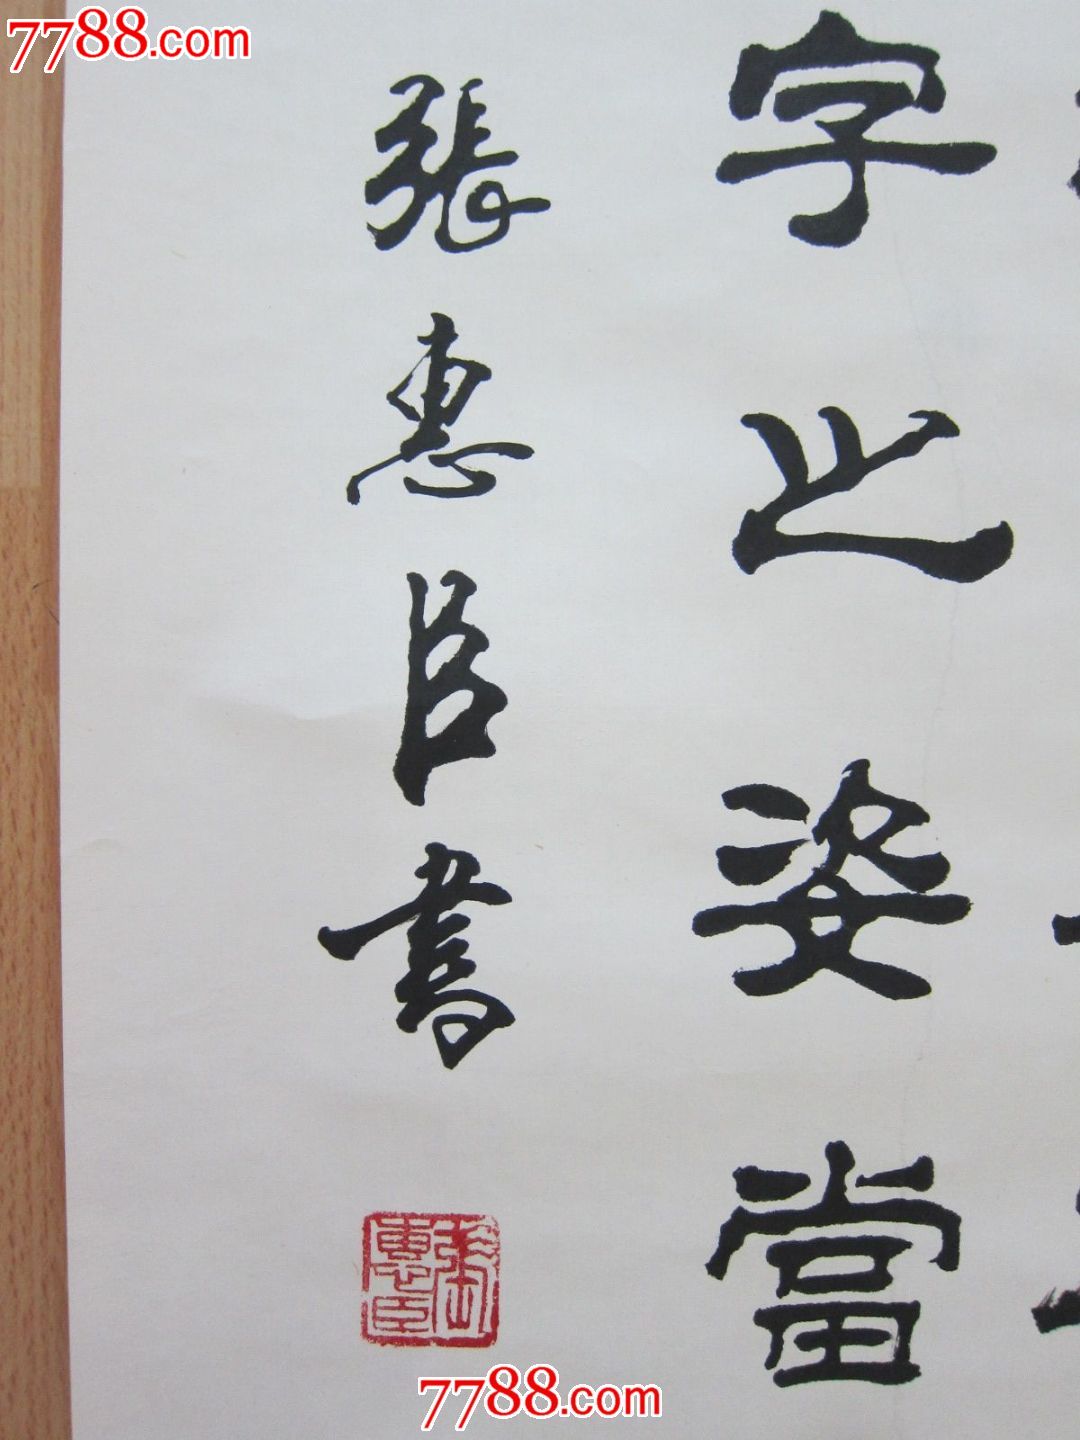 7788.com
字之姿當
張惠臣書
張惠臣
7788.com